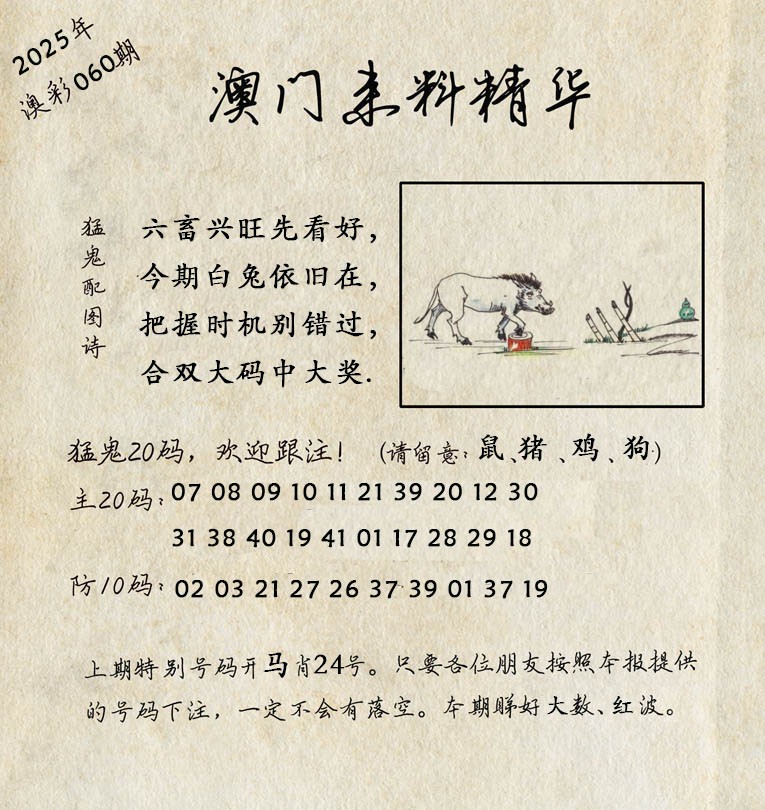 2025年
澳彩060期
澳门来料精华
猛鬼配图诗
六畜兴旺先看好，
今期白兔依旧在，
把握时机别错过，
合双大码中大奖.
猛鬼20码，欢迎跟注！（请留意：鼠、猪、鸡、狗）
主20码：07 08 09 10 11 21 39 20 12 30
31 38 40 19 41 01 17 28 29 18
防10码：02 03 21 27 26 37 39 01 37 19
上期特别号码开马肖24号。只要各位朋友按照本报提供
的号码下注，一定不会有落空。本期睇好大数、红波。